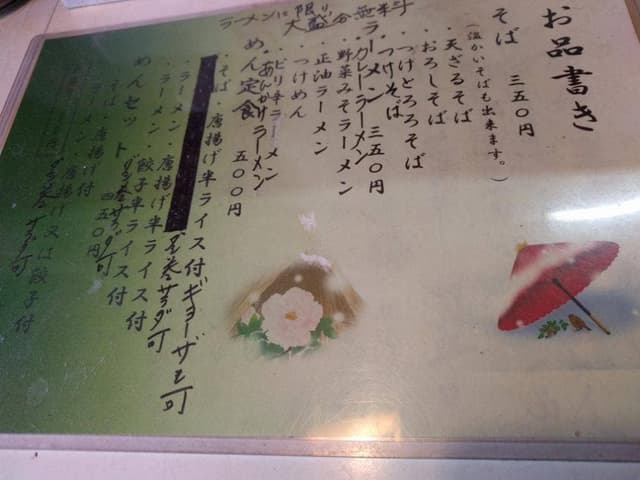 お品書き
そば 三五〇円
(温かいそばも出来ます。)
・天ざるそば
・おろしそば
・つけとろろそば
・つけそば
ラーメンに限り大盛分無料
ラーメン 三五〇円
・カレーラーメン
・野菜みそラーメン
・正油ラーメン
・つけめん
・ピリ辛ラーメン
・あんかけラーメン
めん定食 五〇〇円
・そば・唐揚げ半ライス付ギョーザモ可
・ラーメン・唐揚げ半ライス付
玉巻サラダ可
・ラーメン・餃子半ライス付
めんセット 四五〇円
玉巻サラダ可
・そば・唐揚げ付
・ラーメン・唐揚げ又は餃子付
玉巻サラダ可